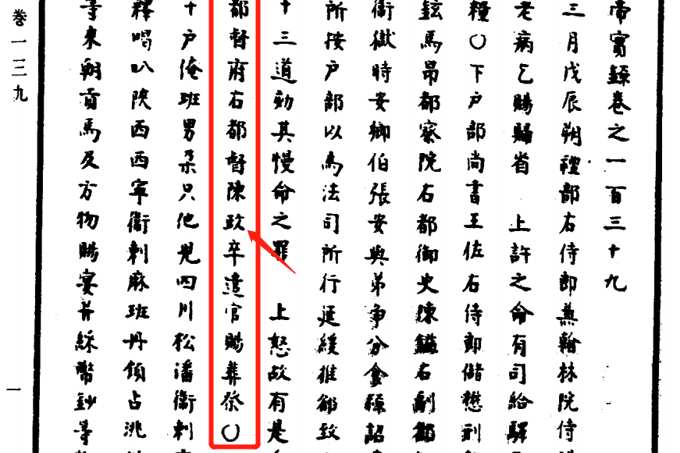 帝實錄卷之一百三十九
三月戊辰朔禮部右侍郎兼翰林院侍講
老病乞賜歸省 上許之命有司給驛
糧○下戶部尚書王佐右侍郎儲懋刑
鉉馬昂都察院右都御史陳鎰右副都
衛獄時安鄉伯張安與弟爭分會祿詔
所按戶部以為法司所行延緩推鄉致
十三道劾其慢命之罪 上怒故有是
都督府右都督陳政卒遣官賜葬祭○
十戶俺班男朵只他兒四川松潘衛剌
釋喝叭陝西西寧衛剌麻班丹領占洮
等來朝貢馬及方物賜宴并綵幣鈔等
卷一三九
一